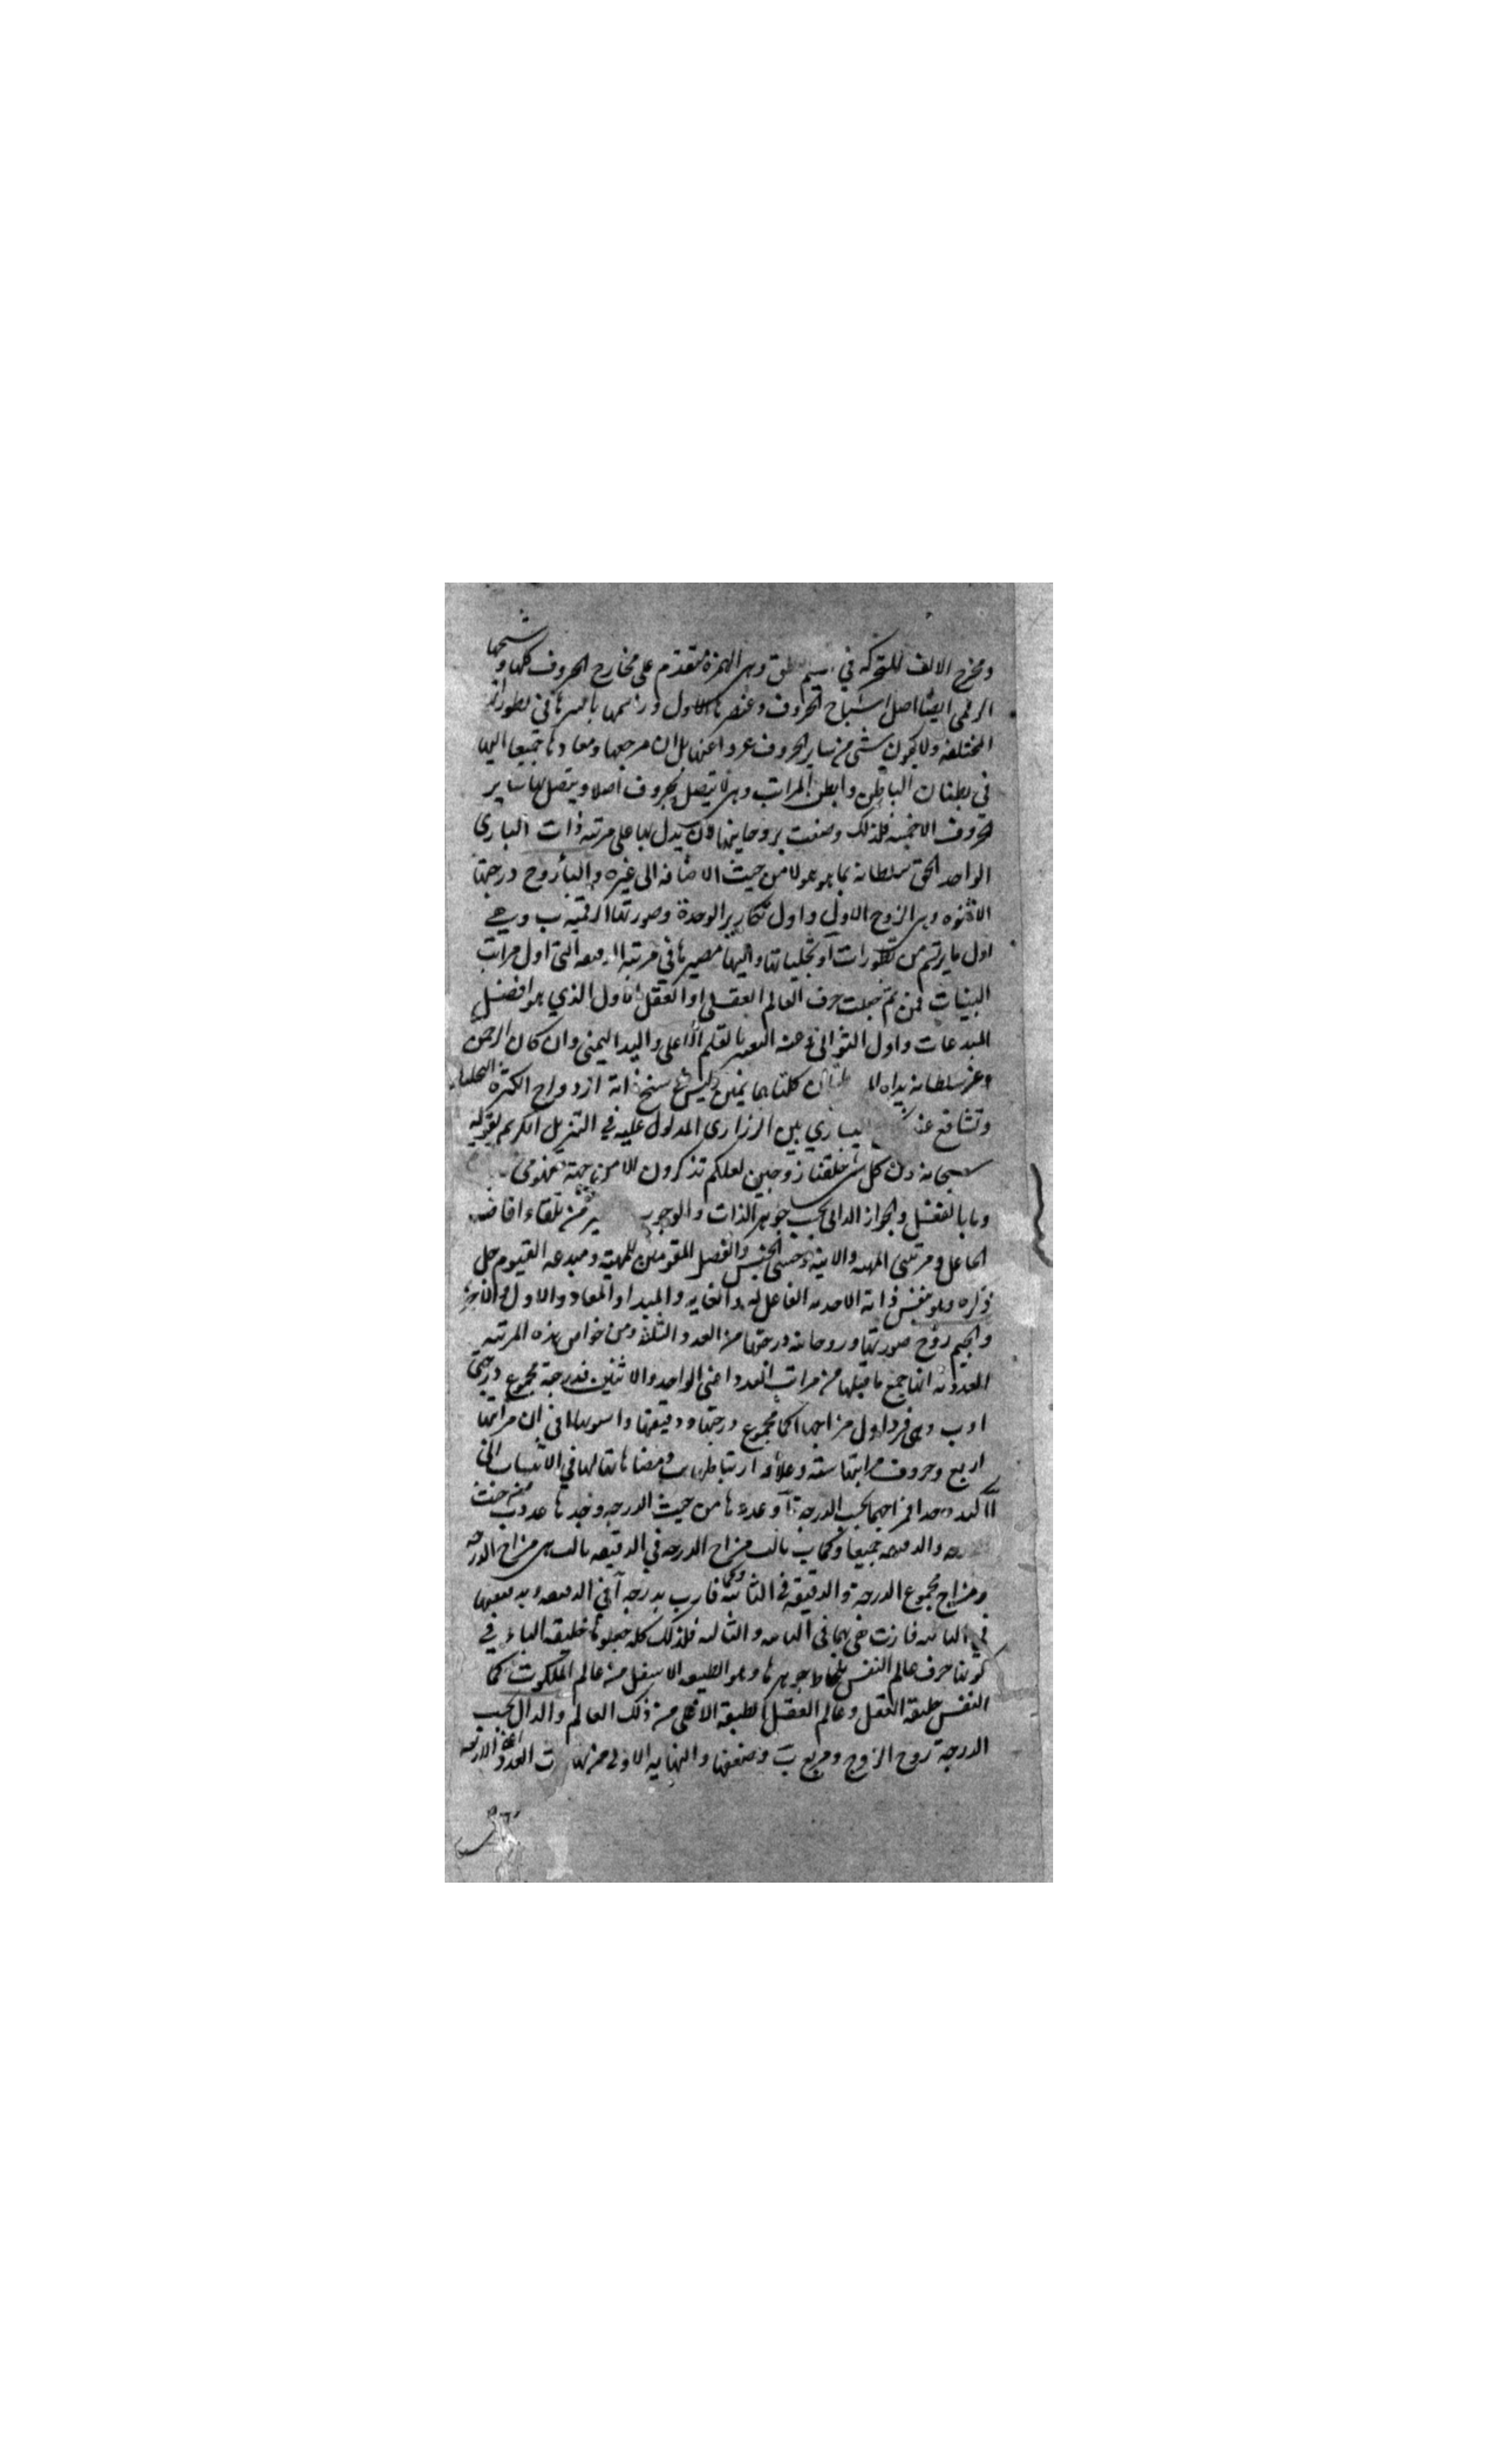 ومخرج الالف المتحركة في اقليم النطق وهي الهمزة متقدم على مخارج الحروف كلها وشبحها
الرقمي ايضا اصل اشباح الحروف وعنصرها الاول وراسمها باسرها في تطوراته
المختلفة ولا يكون شئ من ساير الحروف عروا عنها بل ان مرجعها ومعادها جميعا اليها
في بطنان الباطن وابطن المراتب وهي لا تتصل بحروف اصلا ويتصل بها ساير
الحروف الا خمسة فلذلك وضعت بروحانيتها لان يدل بها على مرتبة ذات الباري
الواحد الحق سلطانه بما هو هو لا من حيث الاضافة الى غيره والباء روح درجتها
الاثنوه وهي الزوج الاول واول تكارير الوحدة وصورتها الرقمية ب وهي
اول ما يرتسم من تطورات آ وتجلياتها واليها مصيرها في مرتبة الدقيقة التي اول مراتب
البينات فمن ثم جعلت حرف العالم العقلي او العقل الاول الذي هو افضل
المبدعات واول الثواني وعنه التعبير بالقلم الاعلى واليد اليمنى وان كان الرحمن
وعز سلطانه يداه كلتاهما يمين وليس في سنخ ذاته ازدواج الكثرة التحليلية
وتشافع الساري بين الذراري المدلول عليه في التنزيل الكريم بقوله
سبحانه ومن كل شئ خلقنا زوجين لعلكم تذكرون الا من جهة مفهومي
وما بالفعل والجواز الذاتي بحسب جوهر الذات والوجوب من تلقاء افاضة
الجاعل ومرتبتي المهية والانية وحيثيتي الجنس والفصل المقومين للمهية ومبدعه القيوم جل
ذكره وهو بنفس ذاته الاحدية الفاعل له والغاية والمبدا والمعاد والاول والاخر
والجيم روح صورتها وروحانية درجتها من العدد الثلثة ومن خواص هذه المرتبة
العددية انها جميع ما قبلها من مراتب العدد اعني الواحد والاثنين فدرجة مجموع درجتي
ا وب وهي فرد اول مزاجها كمجموع درجتها ودقيقتها في ان مراتبها
اربع وحروف مراتبها ستة وعلاقة ارتباطها ب ومضاهاتها لها في الانتساب الى
آ اكيدة جدا لمزاجها بحسب الدرجة آ وعددها من حيث الدرجة وحدها عدد ب من حيث
الدرجة والدقيقة جميعا وكما ب نالت مزاج الدرجة في الدقيقة نالت هي مزاج الدرجة
ومزاج مجموع الدرجة والدقيقة في الثانية وكما فازت ب بدرجة آ في الدقيقة وبدقيقتها
في الثانية فازت هي بهما في الثانية والثالثة فلذلك كله جعلوها خليقة الباء في
كونها حرف عالم النفس بلحاظ جوهرها وهو الطبقة الاسفل من عالم الملكوت كما
النفس خليقة العقل وعالم العقل الطبقة الاعلى من ذلك العالم والدال بحسب
الدرجة زوج الزوج ومربع ب وضعفها والنهاية الاولى من العدد اعني الاربعة